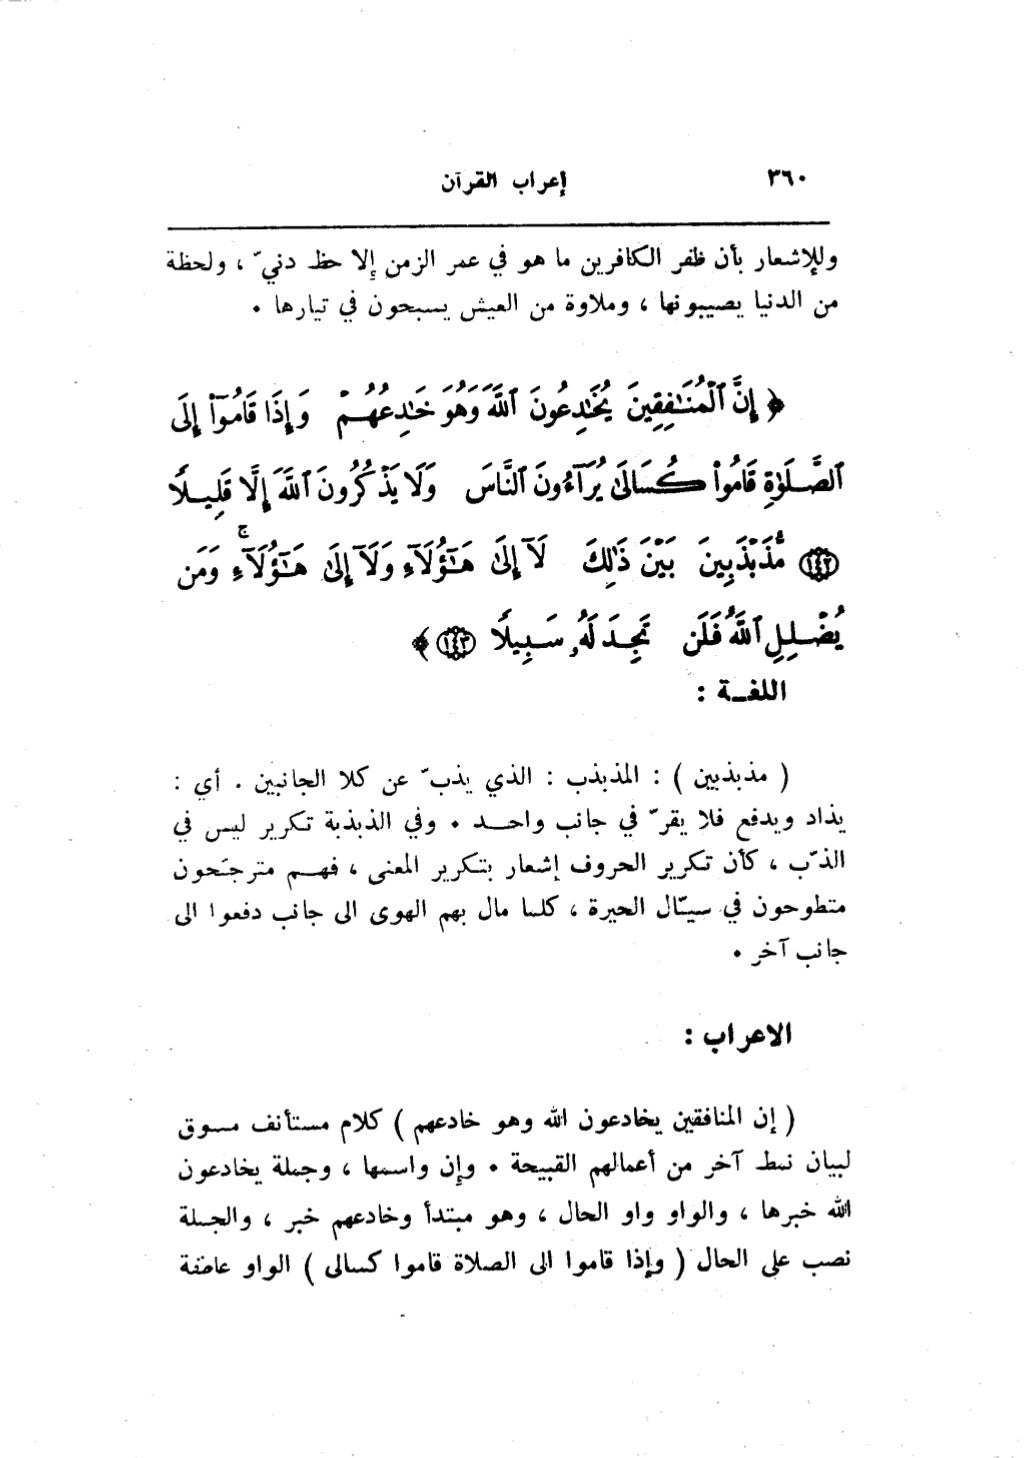 ٣٦٠
إعراب القرآن
وللإشعار بأن ظفر الكافرين ما هو في عمر الزمن إلا حظ دنيّ ، ولحظة
من الدنيا يصيبونها ، وملاوة من العيش يسبحون في تيارها .
﴿ إِنَّ ٱلْمُنَـٰفِقِينَ يُخَـٰدِعُونَ ٱللَّهَ وَهُوَ خَـٰدِعُهُمْ وَإِذَا قَامُوٓا۟ إِلَى
ٱلصَّلَوٰةِ قَامُوا۟ كُسَالَىٰ يُرَآءُونَ ٱلنَّاسَ وَلَا يَذْكُرُونَ ٱللَّهَ إِلَّا قَلِيلًا
﴿١٤٢﴾ مُّذَبْذَبِينَ بَيْنَ ذَٰلِكَ لَآ إِلَىٰ هَـٰٓؤُلَآءِ وَلَآ إِلَىٰ هَـٰٓؤُلَآءِ ۚ وَمَن
يُضْلِلِ ٱللَّهُ فَلَن تَجِدَ لَهُۥ سَبِيلًا ﴿١٤٣﴾ ﴾
اللغـة :
( مذبذبين ) : المذبذب : الذي يذبّ عن كلا الجانبين . أي :
يذاد ويدفع فلا يقرّ في جانب واحـد . وفي الذبذبة تكرير ليس في
الذّب ، كأن تكرير الحروف إشعار بتكرير المعنى ، فهـم مترجّحون
متطوحون في سيّال الحيرة ، كلما مال بهم الهوى الى جانب دفعوا الى
جانب آخر .
الاعراب :
( إن المنافقين يخادعون الله وهو خادعهم ) كلام مستأنف مسوق
لبيان نمط آخر من أعمالهم القبيحة . وإن واسمها ، وجملة يخادعون
الله خبرها ، والواو واو الحال ، وهو مبتدأ وخادعهم خبر ، والجملة
نصب على الحال ( وإذا قاموا الى الصلاة قاموا كسالى ) الواو عاطفة